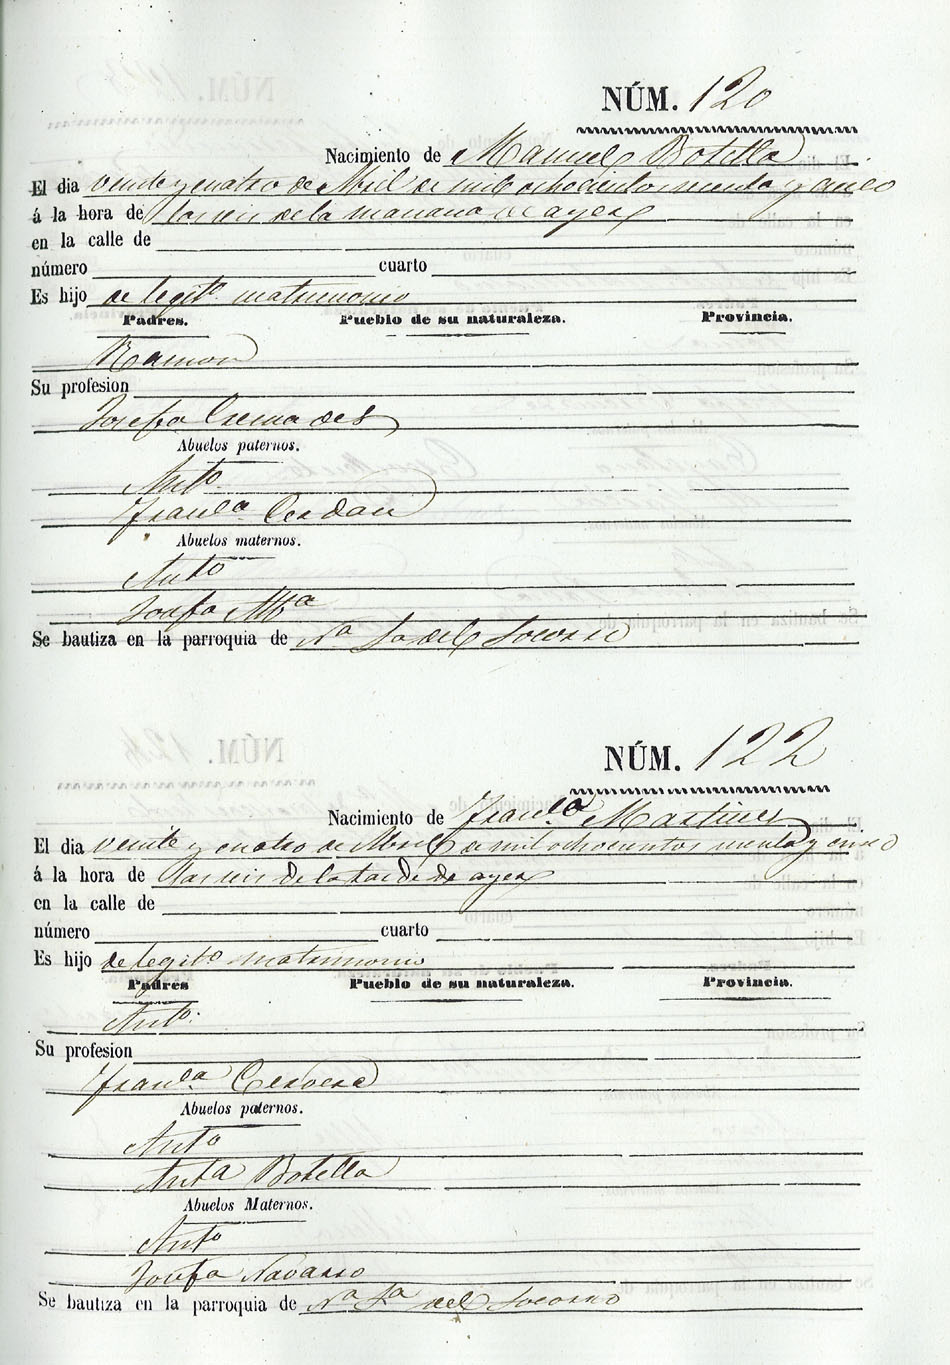 NÚM. 120
Nacimiento de Manuel Botella
El dia veinte y cuatro de Abril de mil ochocientos y cinco
á la hora de las seis de la mañana de ayer
en la calle de
número cuarto
Es hijo de legito. matrimonio
Padres. Pueblo de su naturaleza. Provincia.
Ramon
Su profesion
Josefa Cremades
Abuelos paternos.
Anto.
Franca Cerdan
Abuelos maternos.
Anto
Josefa
Se bautiza en la parroquia de Na Sa del Socorro
NÚM. 122
Nacimiento de Franca Martinez
El dia veinte y cuatro de Abril de mil ochocientos y cinco
á la hora de las seis de la tarde de ayer
en la calle de
número cuarto
Es hijo de legito matrimonio
Padres Pueblo de su naturaleza. Provincia.
Anto.
Su profesion
Franca Cervera
Abuelos paternos.
Anto
Anta Botella
Abuelos Maternos.
Anto
Josefa Navarro
Se bautiza en la parroquia de Na Sa del Socorro